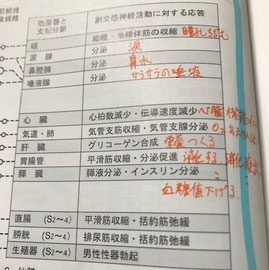 効果器と
支配分節
副交感神経活動に対する応答
眼
瞳孔・毛様体筋の収縮
涙腺
分泌
涙
鼻腔腺
分泌
鼻水
唾液腺
分泌
サラサラの唾液
心臓
心拍数減少・伝導速度減少
気道・肺
気管支筋収縮・気管支腺分泌
肝臓
グリコーゲン合成
つくる
胃腸管
平滑筋収縮・分泌促進
消化する
膵臓
膵液分泌・インスリン分泌
血糖値下げる
直腸 (S2〜4)
平滑筋収縮・括約筋弛緩
膀胱 (S2〜4)
排尿筋収縮・括約筋弛緩
生殖器 (S2〜4)
男性性器勃起